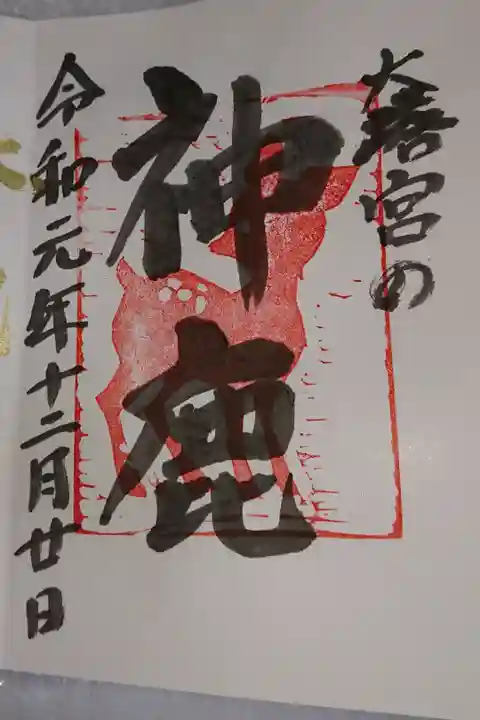 大塔宮の
神鹿
令和元年十二月廿日